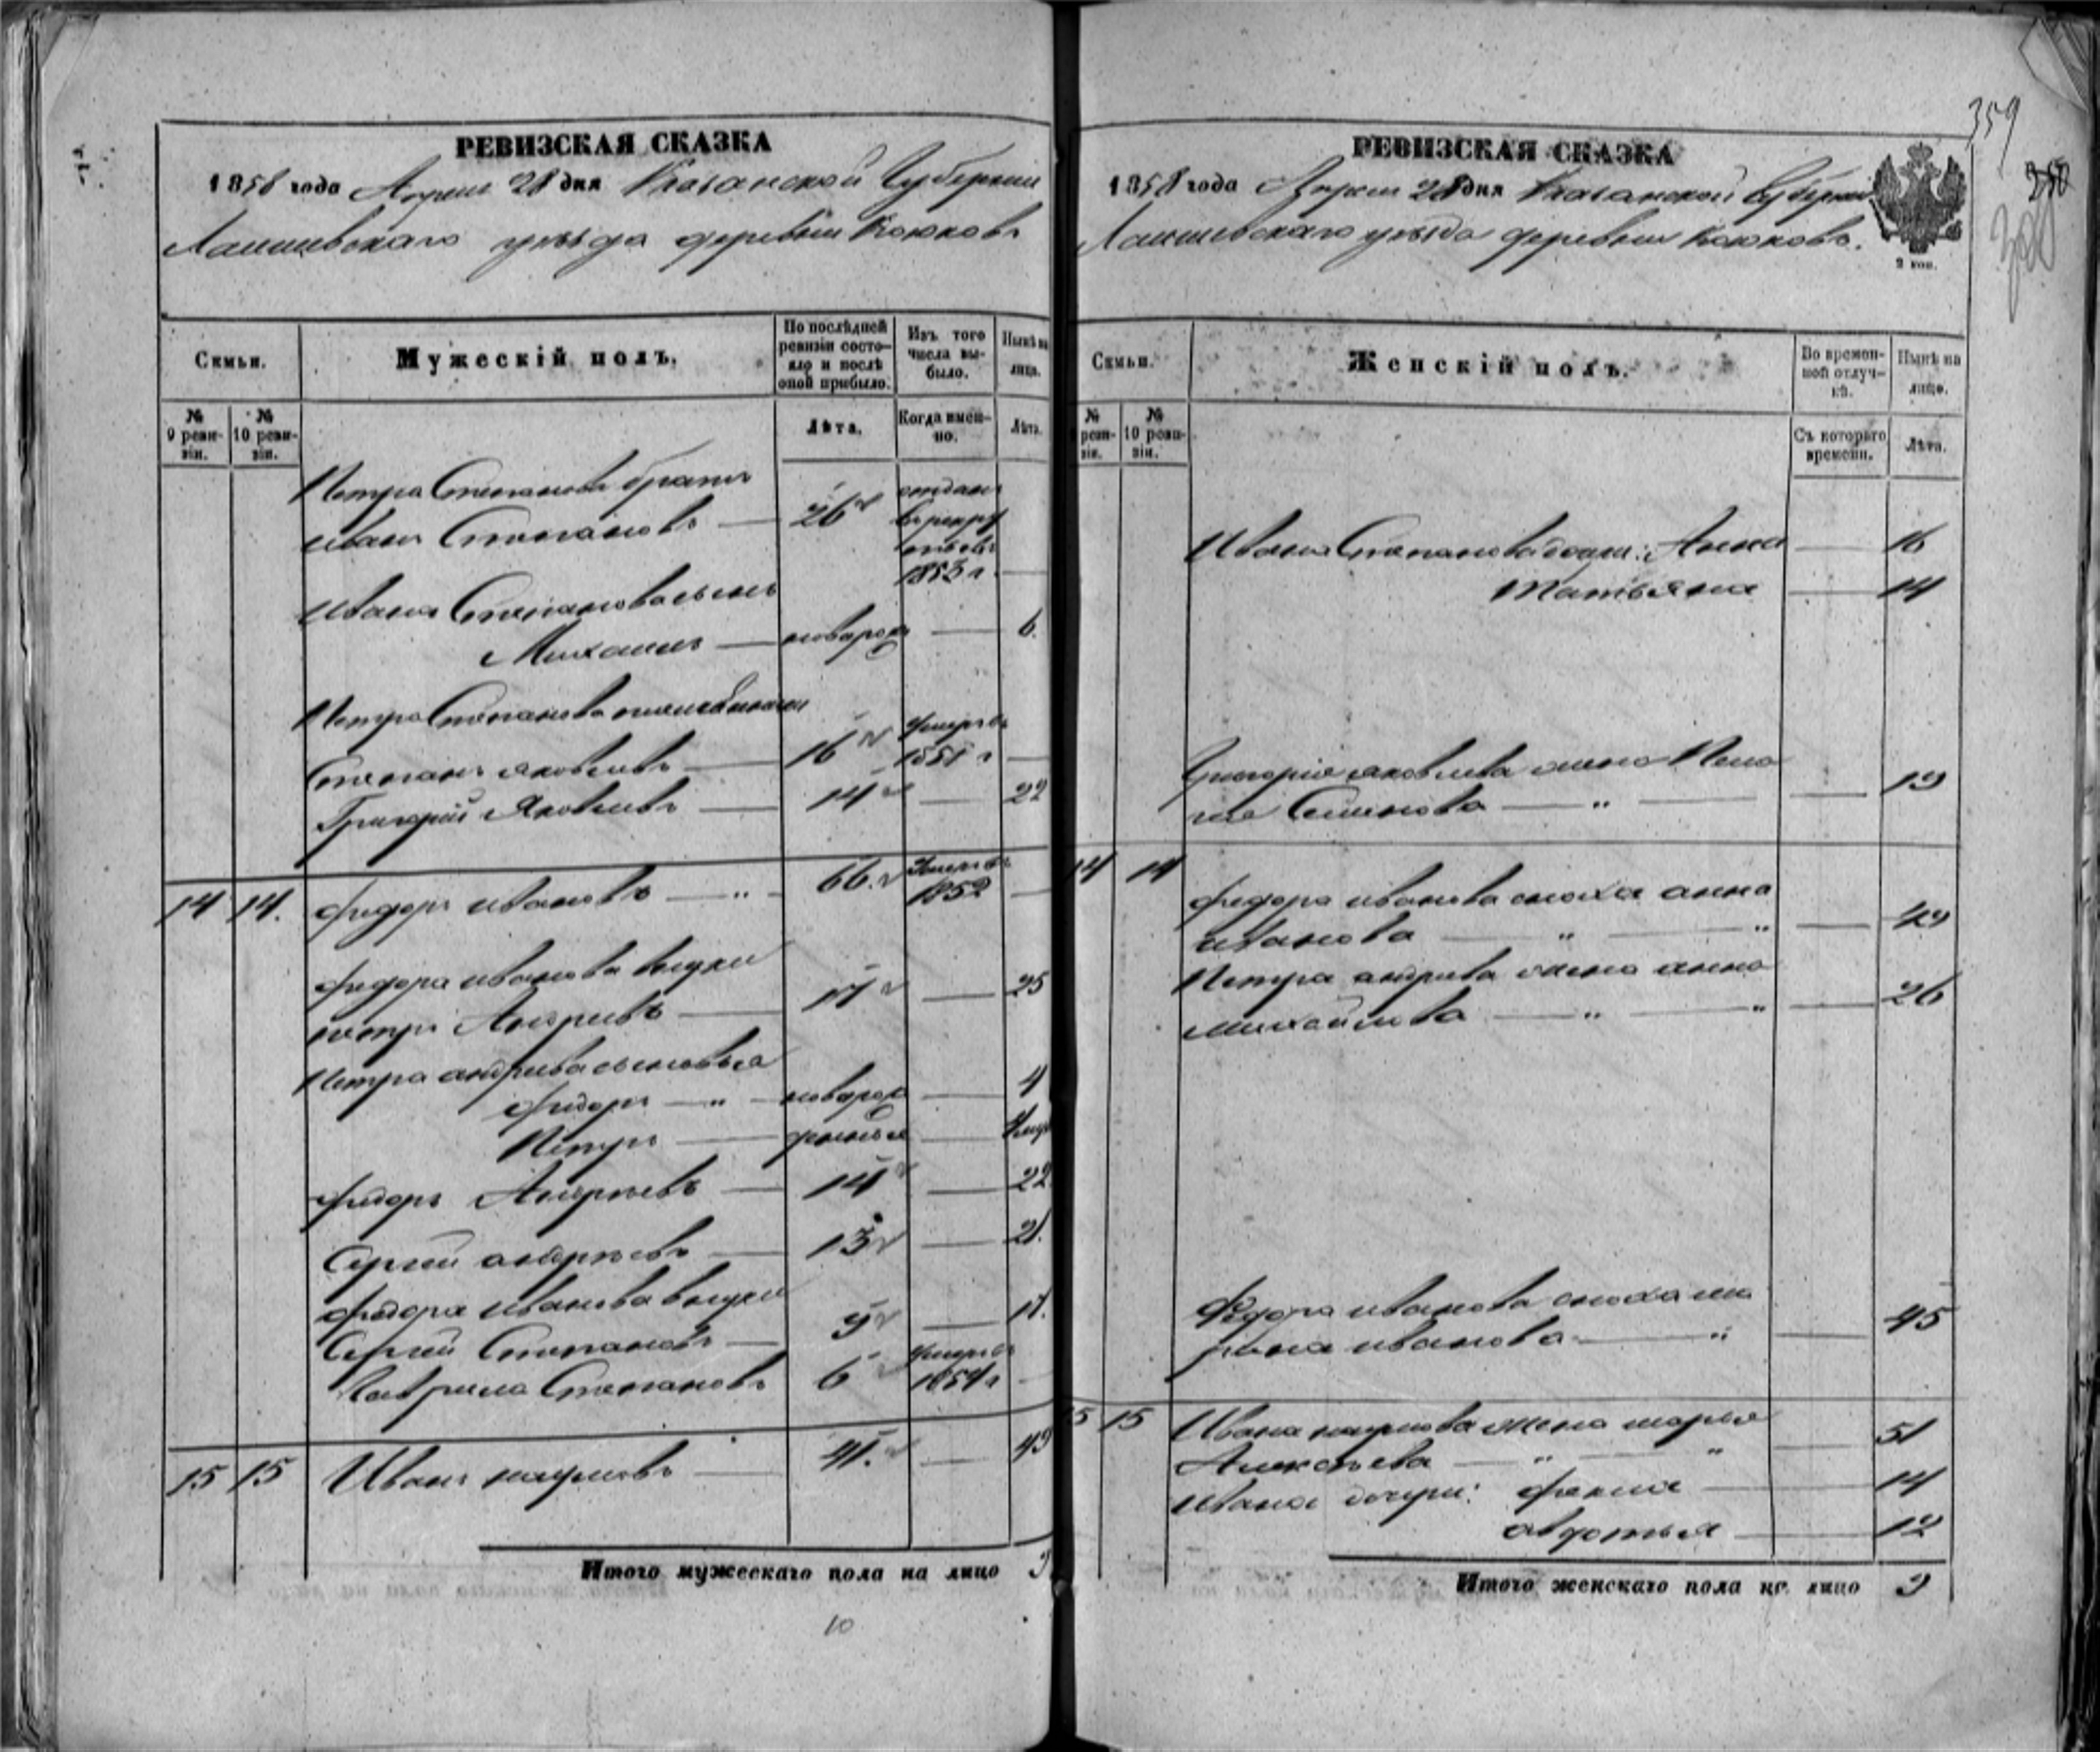 РЕВИЗСКАЯ СКАЗКА
1858 года Апреля 28 дня Казанской Губернии
Лаишевскаго уѣзда деревни Коюковъ
Семьи.
Мужескій полъ.
По послѣдней ревизіи состояло и послѣ оной прибыло.
Изъ того числа выбыло.
Нынѣ на лицо.
№ 9 ревизіи.
№ 10 ревизіи.
Лѣта.
Когда именно.
Лѣта.
Петра Степанова братъ
Иванъ Степановъ — 26 отданъ в рекруты въ 1853 г. —
Ивана Степанова сынъ
Михаилъ — новорож — 6.
Петра Степанова племянники
Степанъ Яковлевъ — 16 Умеръ въ 1851 г —
Григорій Яковлевъ — 14 — 22
14 14. Федоръ Ивановъ — " 66. Умеръ въ 1852 —
Федора Иванова внуки
Петръ Андреевъ — 17 — 25
Петра Андреева сыновья
Федоръ — " — новорож — 4
Петръ — денные —
Федоръ Андреевъ — 14 — 22
Сергей Андреевъ — 13 — 21.
Федора Иванова внуки
Сергей Степановъ — 9 — 17.
Гаврила Степановъ 6 Умеръ въ 1854 г —
15 15 Иванъ Наумовъ — 41. — 49
Итого мужескаго пола на лицо 9
10
359
350
РЕВИЗСКАЯ СКАЗКА
1858 года Апреля 28 дня Казанской Губернии
Лаишевскаго уѣзда деревни Коюковъ.
2 коп.
Семьи.
Женскій полъ.
Во временной отлучкѣ.
Нынѣ на лицо.
№ ревизіи.
№ 10 ревизіи.
Съ котораго времени.
Лѣта.
Ивана Степанова дочери: Анна — 16
Татьяна — 14
Григорія Яковлева жена Пела
гея Семенова — " — — 19
14 14 Федора Иванова сноха Анна
Иванова — " — " — 49
Петра Андреева жена Анна
Михайлова — " — " — 26
Федора Иванова сноха Ма
рина Иванова — " — 45
15 15 Ивана Наумова жена Марья
Алексѣева — " — " — 51
Ивана дочери: Фекла — 14
Авдотья — 12
Итого женскаго пола на лицо 9